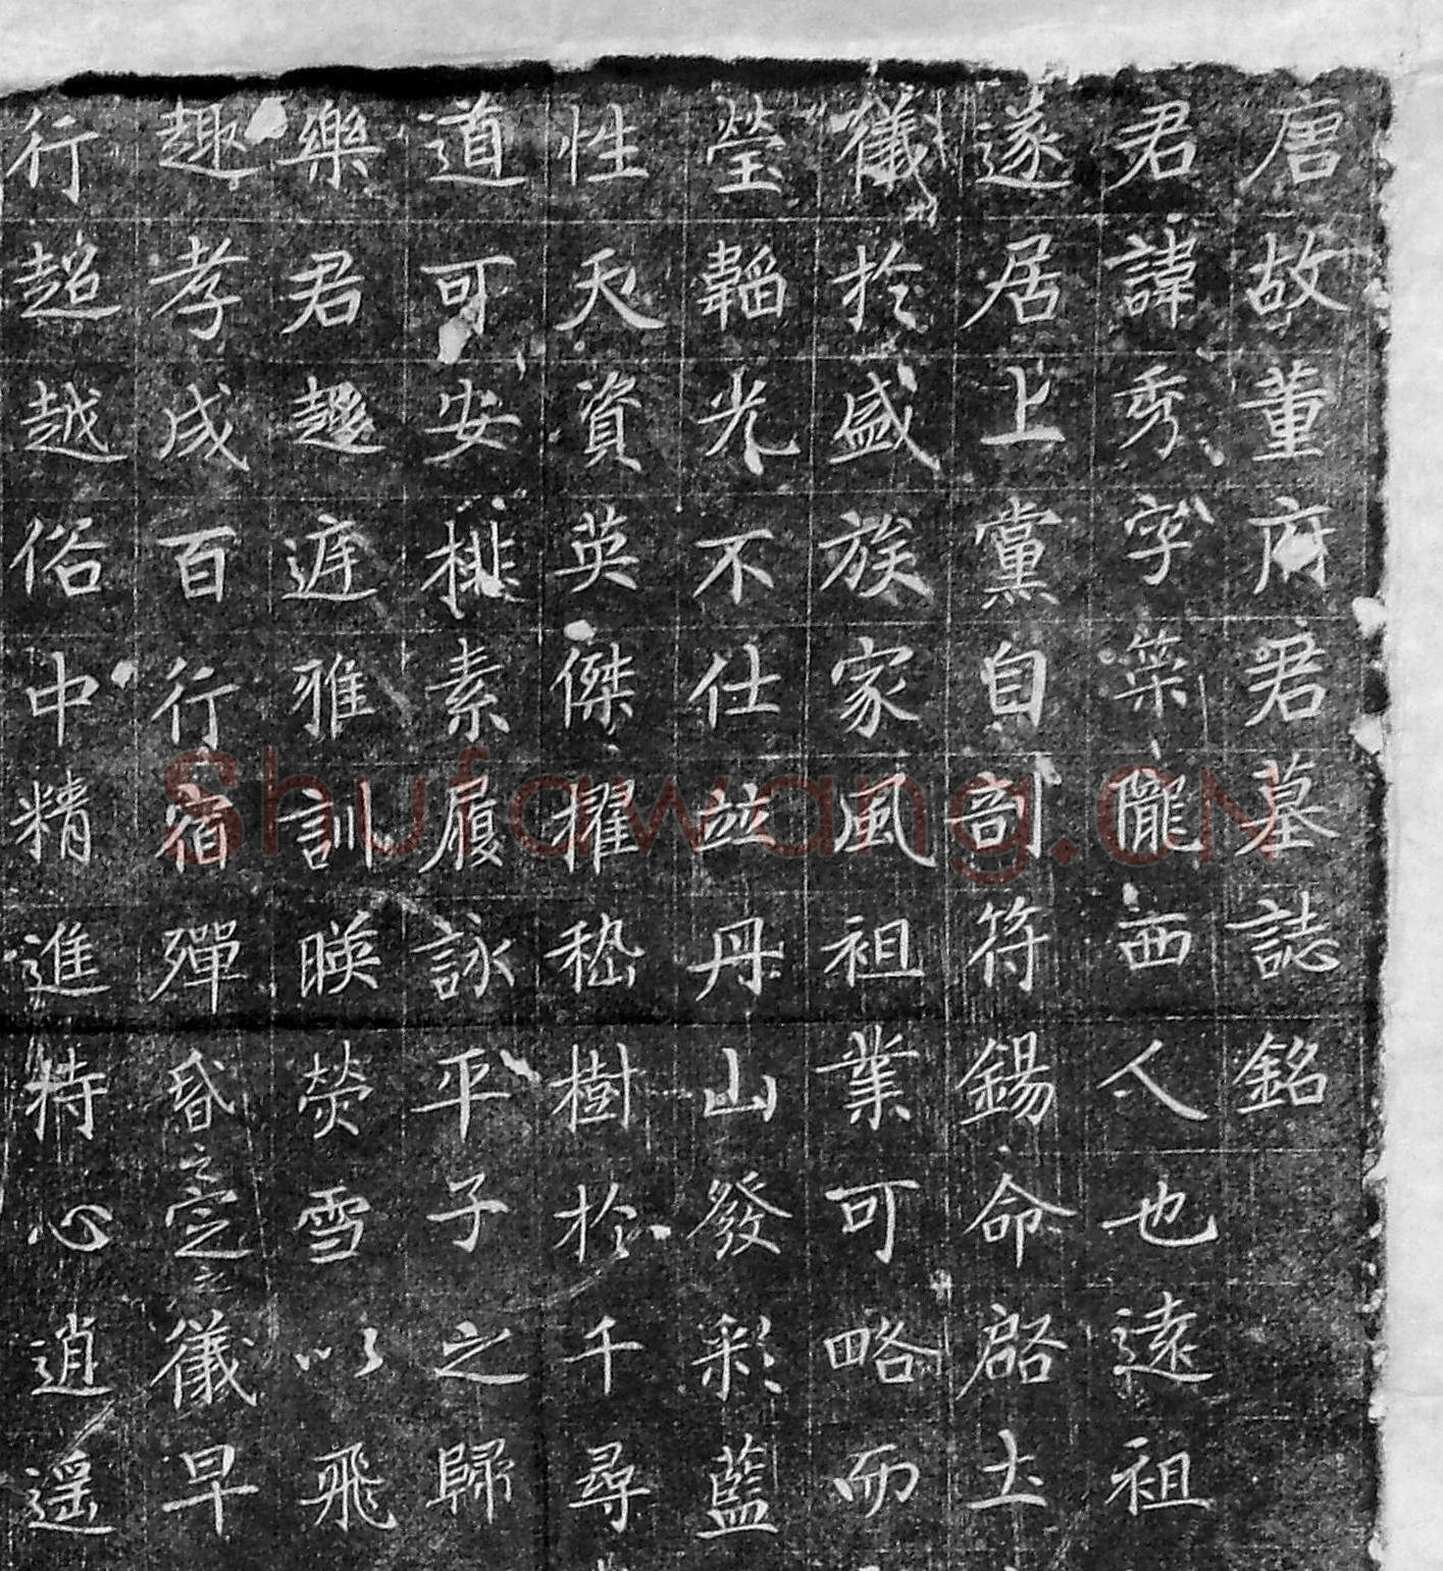 唐故董府君墓誌銘
君諱秀字䇿隴西人也遠祖
遂居上黨自剖符錫命啓土
儀於盛族家風祖業可略而
瑩韜光不仕並丹山發彩藍
性天資英傑擢嵇樹於千尋
道可安排素履詠平子之歸
樂君趨遊雅訓暎熒雪以飛
趣孝成百行宿殫昏之定之儀早
行超越俗中精進特心逍遥
Shufawang.CN